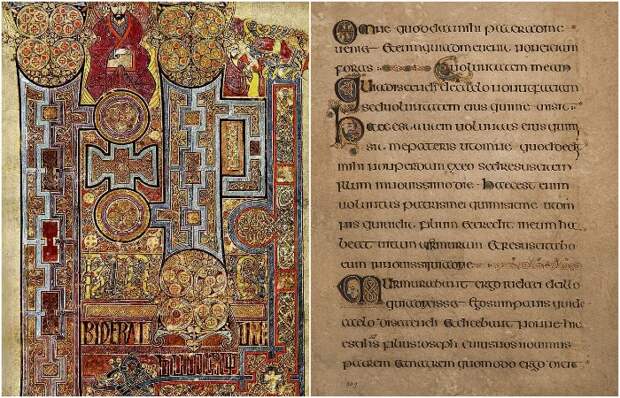 BIDERAT UER
Omne quod dat mihi pater ad me
ueniet et eum qui ad me uenit non eiciam
foras uoluntatem meam
Quia discendi de caelo non ut faciam
sed uoluntatem eius qui me misit
Haec est autem uoluntas eius qui mi
sit me patris ut omne quod dedit
mihi non perdam ex eo sed resuscitem
illum in nouissimo die Haec est enim
uoluntas patris mei qui misit me ut om
nis qui uidet filium et credit in eum ha
beat uitam aeternam et resuscitabo
eum in nouissimo die
Murmurabant ergo iudei de illo
quia dixisset Ego sum panis qui de
caelo discendi et dicebant nonne hic
est ihs filius ioseph cuius nos nouimus
patrem et matrem quomodo ergo dicit